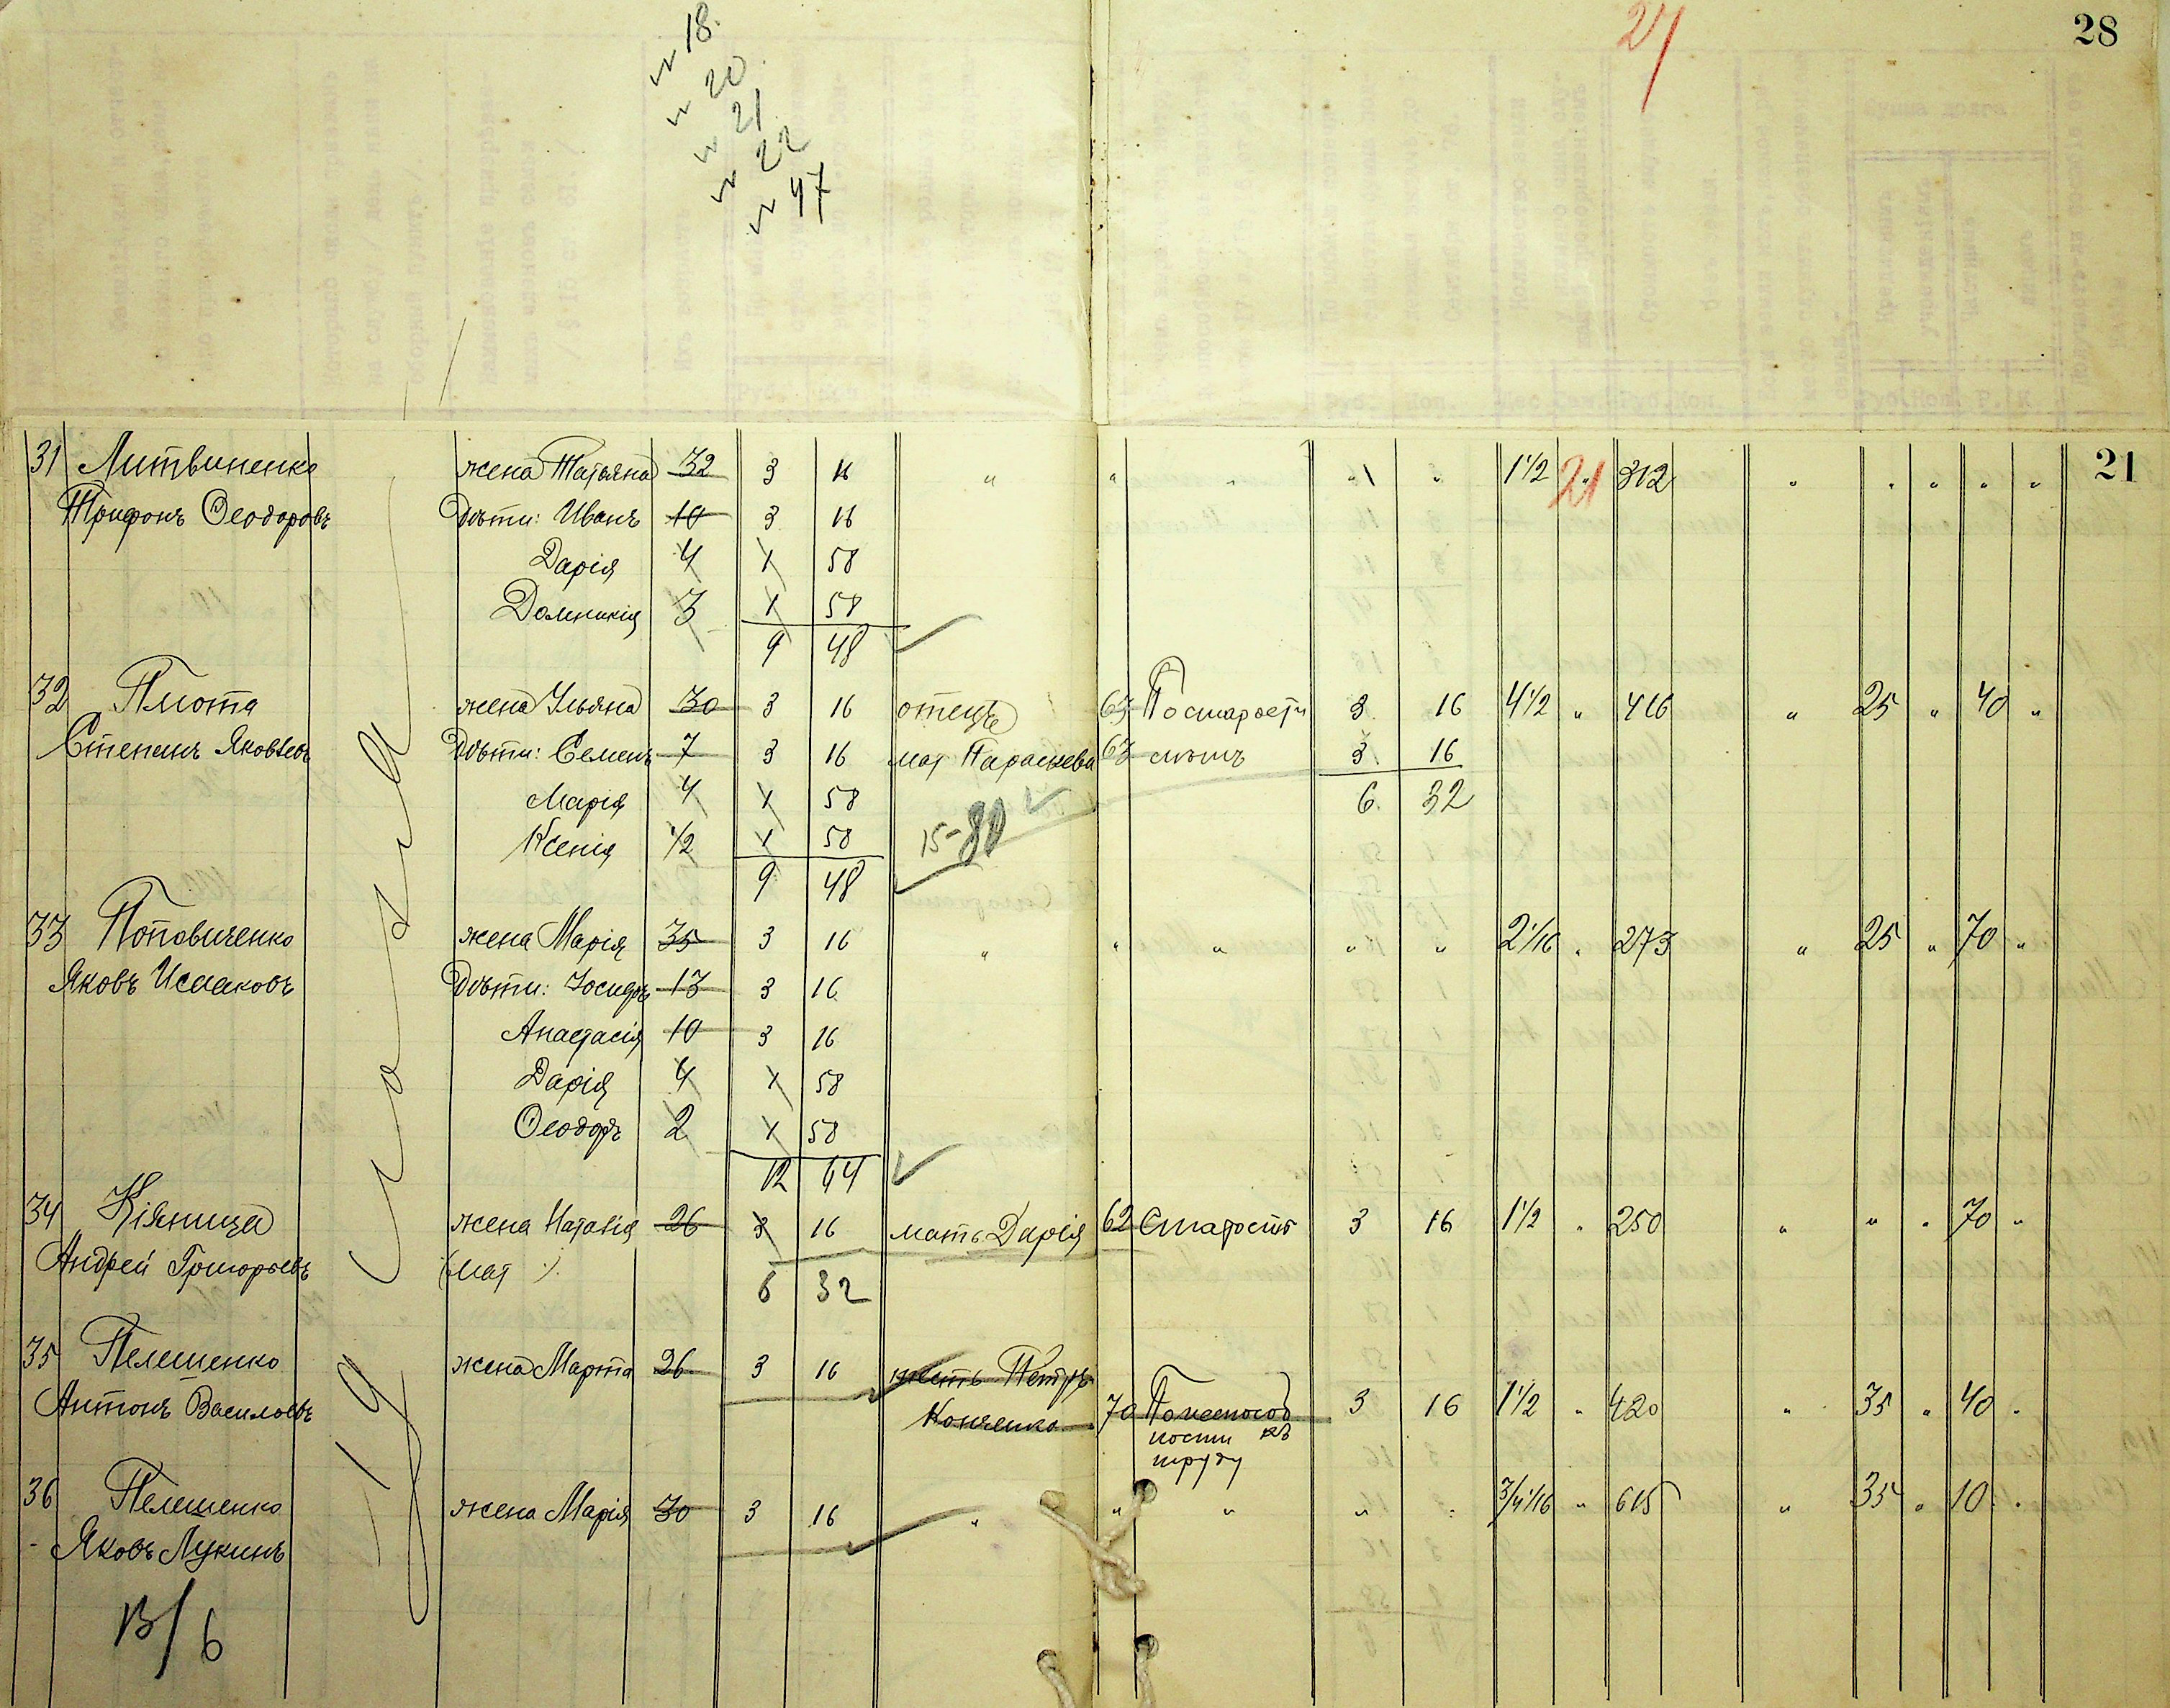 28
27
w 18.
w 20.
w 21
w 22
w 47
31 Литвиненко жена Татьяна 32 3 16 " " " " " 1 1/2 " 312 " " " " " 21
21
Трифонъ Ѳеодоровъ Дѣти: Иванъ 10 3 16
Дарія 4 1 58
Домникія 3 1 58
9 48
32 Плюта жена Ульяна 30 3 16 отецъ 63 По старости 3 16 4 1/2 " 416 " 25 " 40 "
Степанъ Яковлевъ Дѣти: Семенъ 7 3 16 мат Параскева 63 3 16
Марія 4 1 58 6 32
Ксенія 1/2 1 58 15-80
9 48
33 Поповиченко жена Марія 35 3 16 " " " " " 2 1/16 " 273 " 25 " 70 "
Яковъ Исааковъ Дѣти: Іосифъ 13 3 16
Анастасія 10 3 16
Дарія 4 1 58
Ѳеодоръ 2 1 58
12 64
34 Кіяница жена Наталія 26 3 16 мать Дарія 62 Старость 3 16 1 1/2 " 250 " " " 70 "
Андрей Григорьевъ (мат )
6 32
35 Пелешенко жена Марта 26 3 16 Петръ
Антонъ Васильевъ Конченко 70 По неспособ 3 16 1 1/2 " 420 " 35 " 40 "
ности къ
труду
36 Пелешенко жена Марія 30 3 16 " " " " " 3/4 1/16 " 615 " 35 " 10 "
Яковъ Лукинъ
13/6